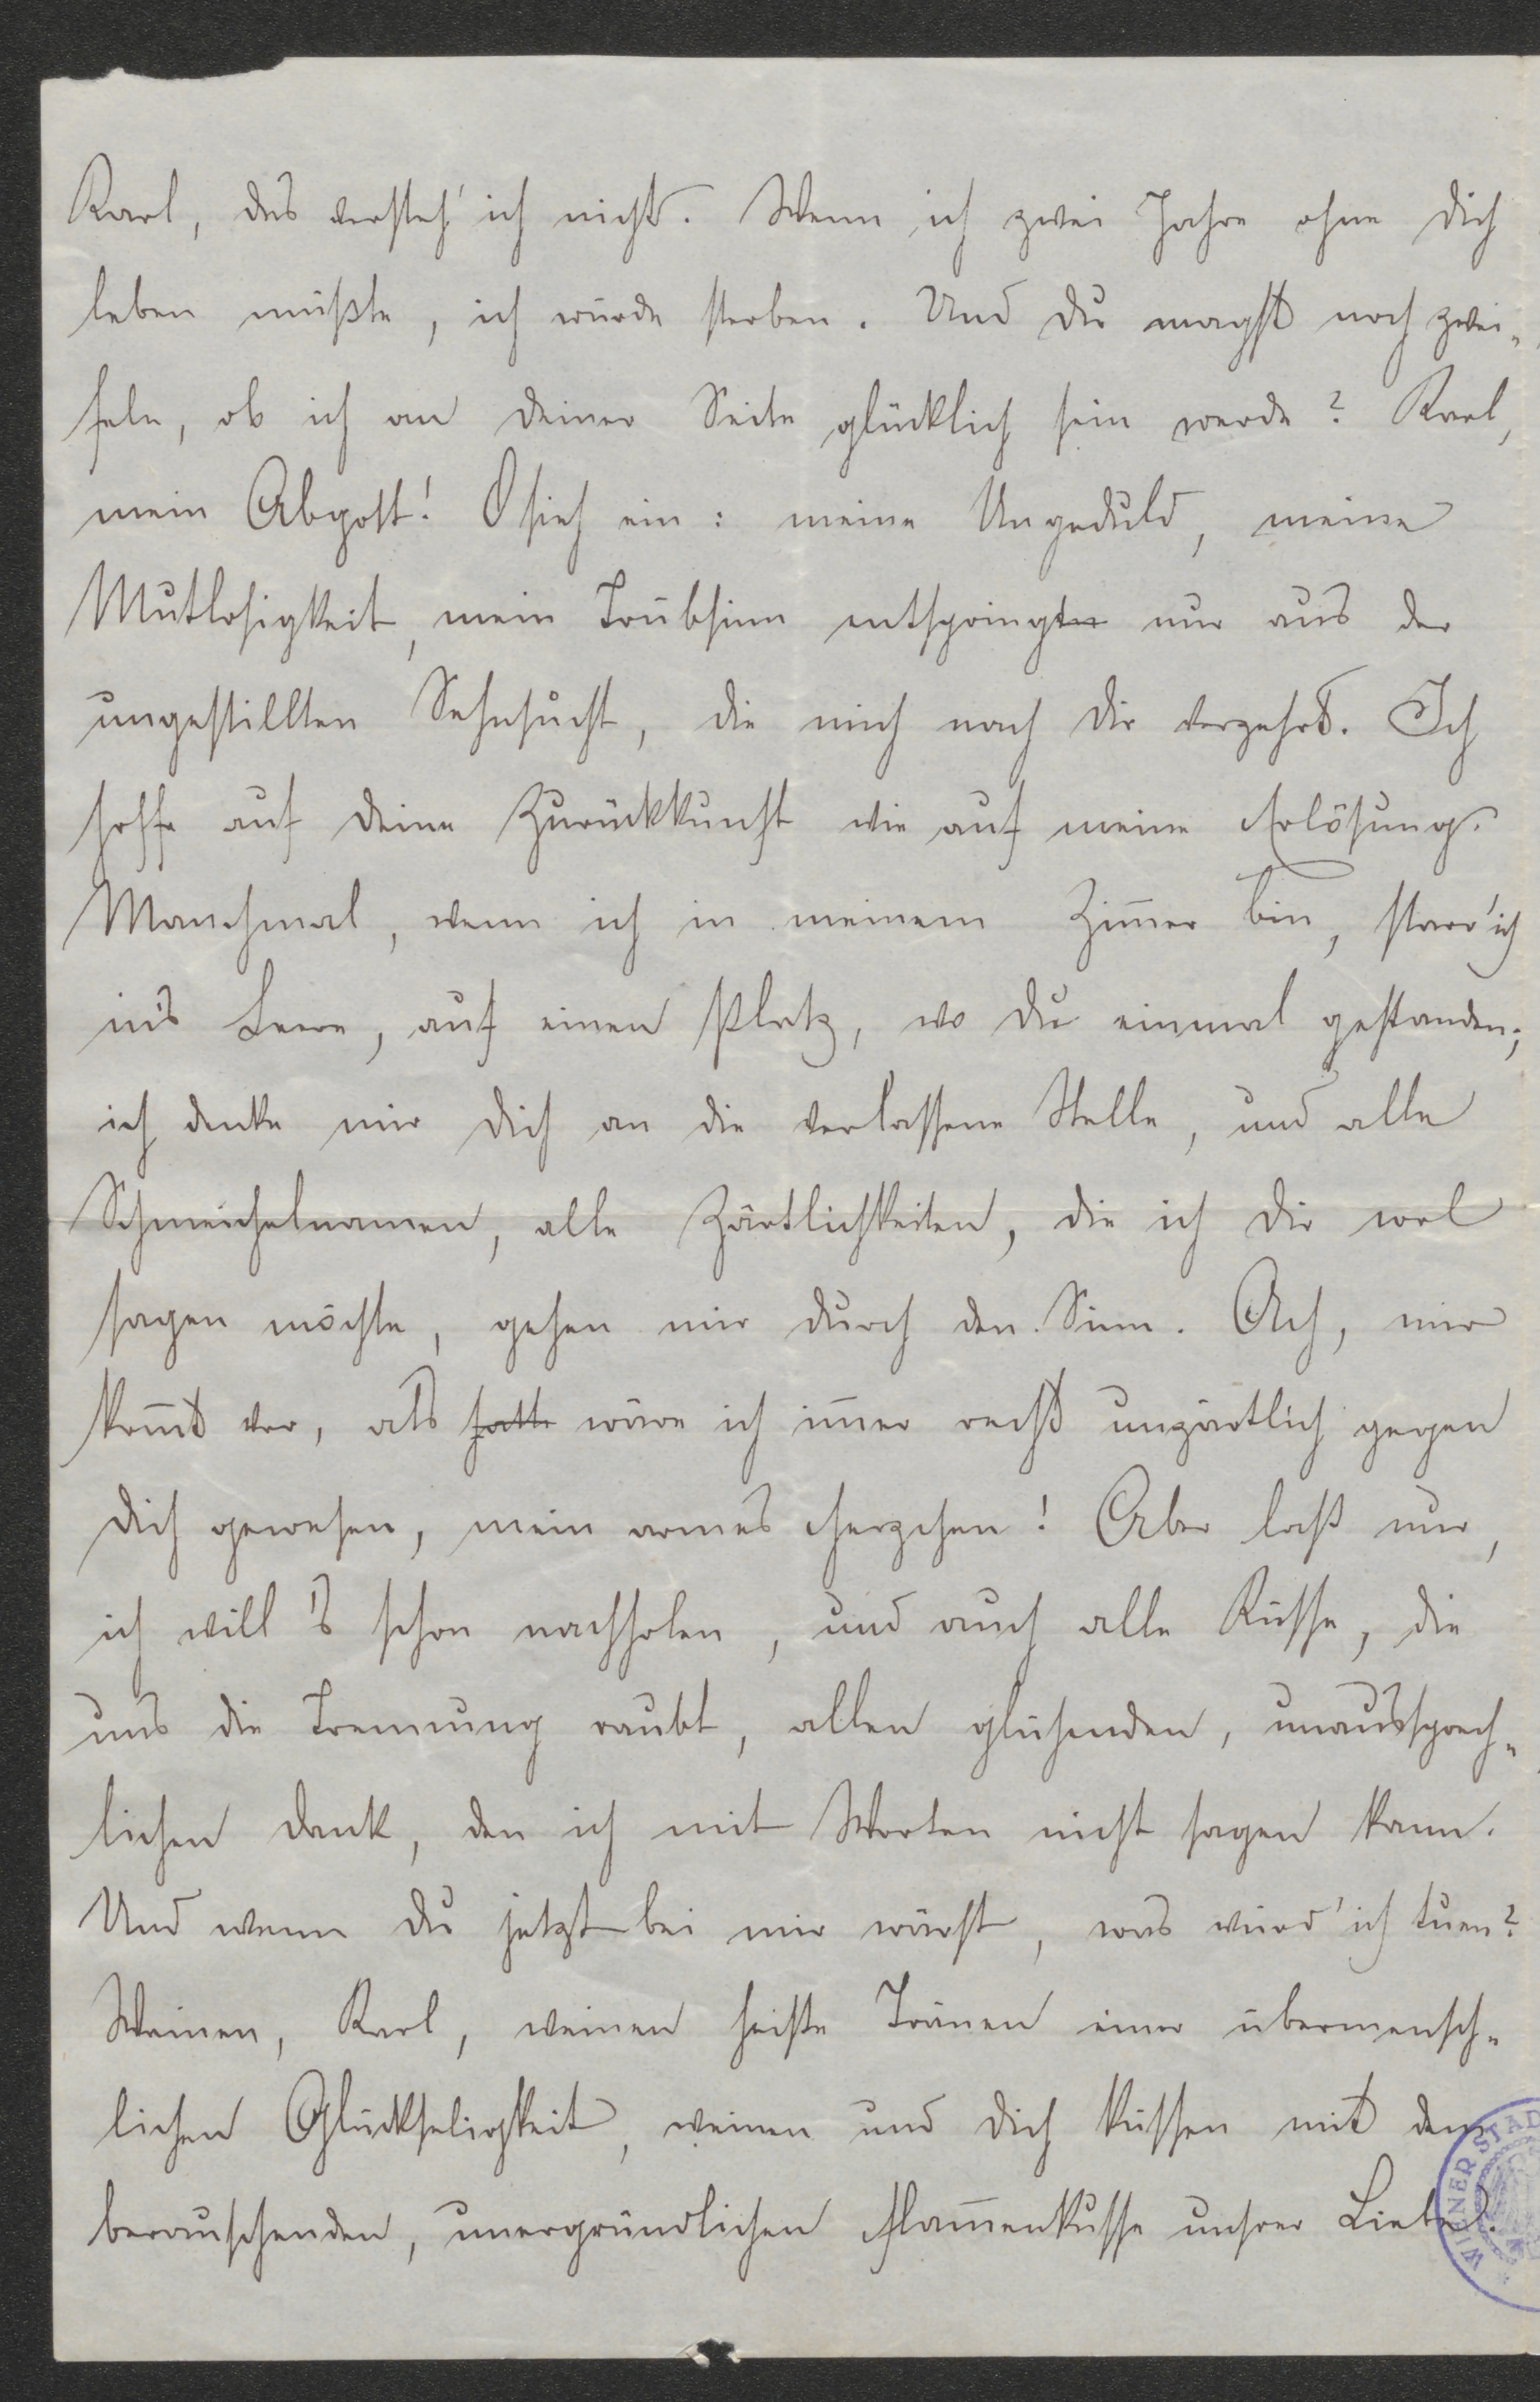 Karl, das versteh' ich nicht. Wenn ich zwei Jahre ohne dich
leben müßte, ich würde sterben. Und du magst noch zwei-
feln, ob ich an deiner Seite glücklich sein werde? Karl,
mein Abgott! O sieh ein: meine Ungeduld, meine
Mutlosigkeit, mein Trübsinn entspringten nur aus der
ungestillten Sehnsucht, die mich nach dir verzehrt. Ich
hoffe auf deine Zurückkunft wie auf meine Erlösung.
Manchmal, wenn ich in meinem Zim̄er bin, starr' ich
in's Leere, auf einen Platz, wo du einmal gestanden;
ich denke mir dich an die verlassene Stelle, und alle
Schmeichelnamen, alle Zärtlichkeiten, die ich dir wol
sagen möchte, gehen mir durch den Sinn. Ach, mir
kom̄t vor, als hätte wäre ich im̄er recht unzärtlich gegen
dich gewesen, mein armes Herzchen! Aber laß nur,
ich will's schon nachholen, und auch alle Küsse, die
uns die Trennung raubt, allen glühenden, unaussprech-
lichen Dank, den ich mit Worten nicht sagen kann.
Und wenn du jetzt bei mir wärst, was würd' ich tuen?
Weinen, Karl, weinen heiße Tränen einer übermensch-
lichen Glückseligkeit, weinen und dich küssen mit dem
berauschenden, unergründlichen Flam̄enkusse unsrer Liebe.
WIENER STAD